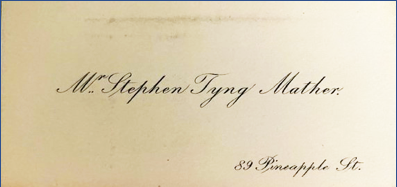 Mr. Stephen Tyng Mather.
89 Pineapple St.